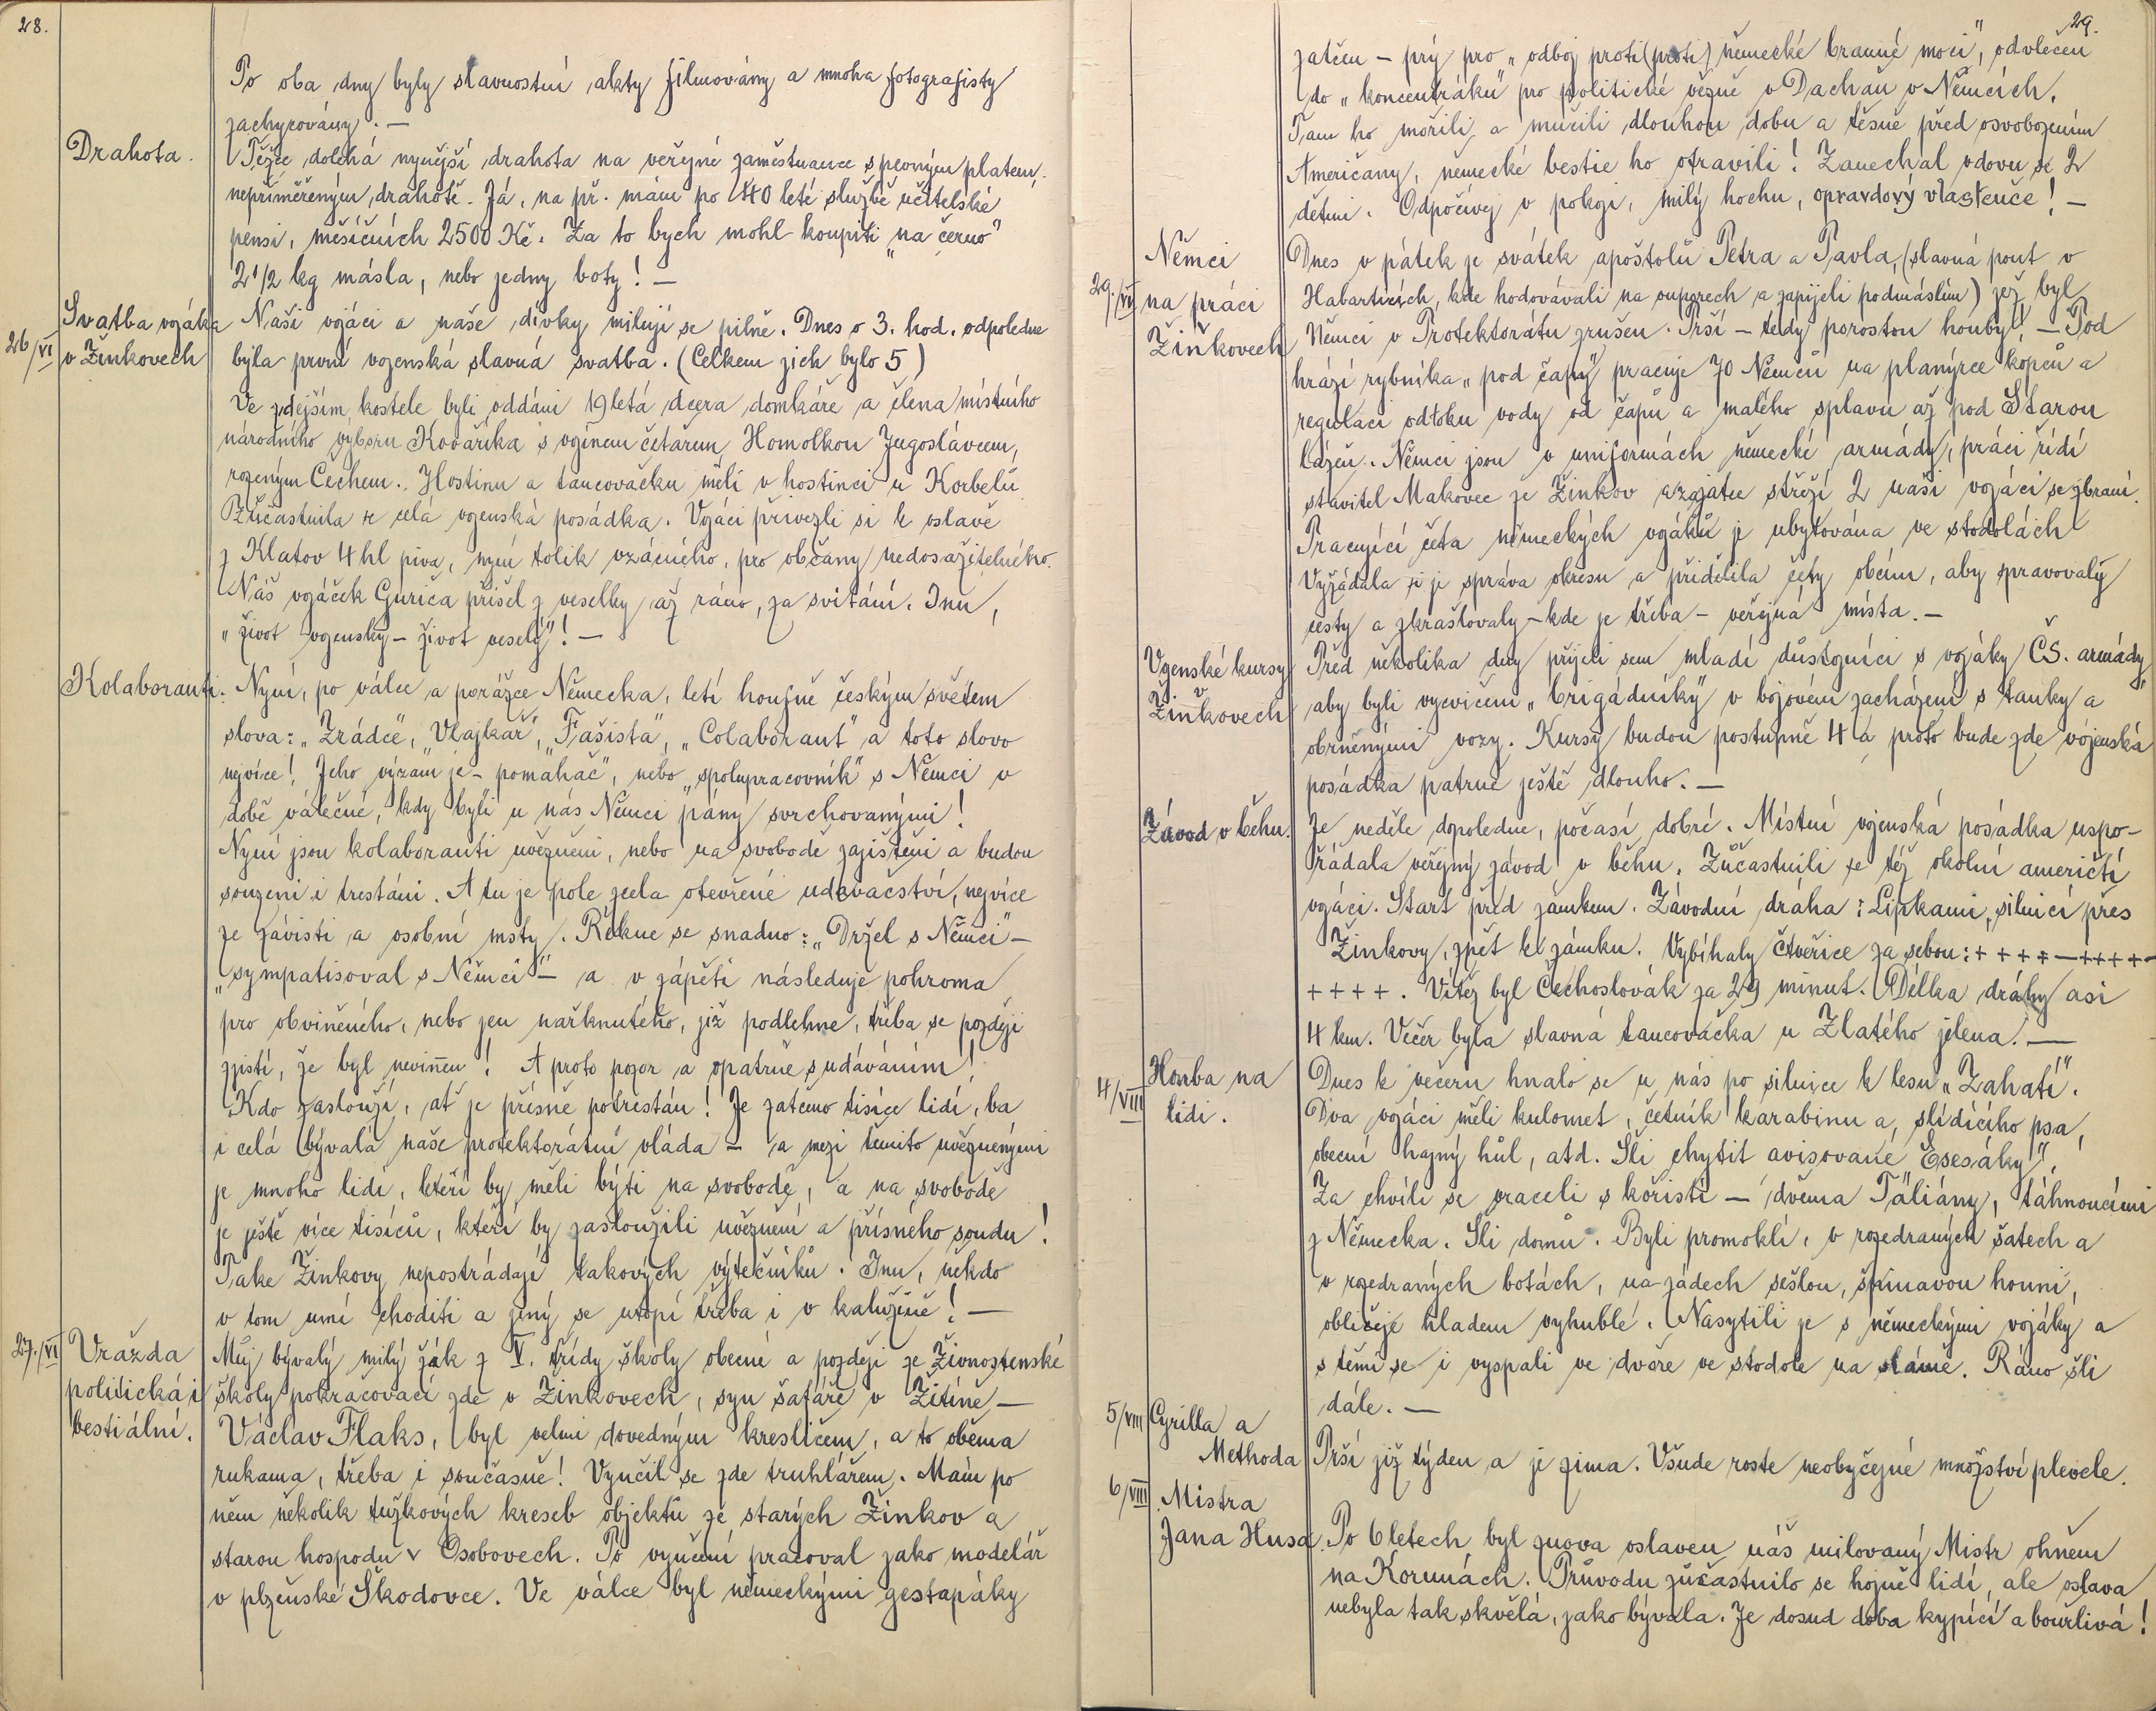 28.
Po oba dny byly slavnostní akty filmovány a mnoha fotografisty
zachycovány. —
Drahota.
Těžce doléhá nynější drahota na veřejné zaměstnance s pevným platem,
nepřiměřeným drahotě. Já, na př. mám po 40 leté službě učitelské
pensi, měsíčních 2500 Kč. Za to bych mohl koupiti „na černo"
2 1/2 kg másla, nebo jedny boty! —
26/VI
Svatba vojáka
v Žinkovech
Naši vojáci a naše dívky milují se pilně. Dnes o 3. hod. odpoledne
byla první vojenská slavná svatba. (Celkem jich bylo 5)
Ve zdejším kostele byli oddáni 19letá dcera domkáře a člena místního
národního výboru Kovaříka s vojínem četařem Homolkou Jugoslávcem,
rozeným Čechem. Hostinu a tancovačku měli v hostinci u Korbelů.
Zúčastnila se celá vojenská posádka. Vojáci přivezli si k oslavě
z Klatov 4 hl piva, nyní tolik vzácného, pro občany nedosažitelného.
Náš vojáček Gurića přišel z veselky až ráno, za svítání. Inu,
„život vojenský – život veselý"! —
Kolaboranti.
Nyní, po válce a porážce Německa, letí houfně českým světem
slova: „Zrádce", „Vlajkař", „Fašista", „Colaborant" a toto slovo
nejvíce! Jeho význam je – pomahač", nebo „spolupracovník" s Němci v
době válečné, kdy byli u nás Němci pány svrchovanými!
Nyní jsou kolaboranti uvězněni, nebo na svobodě zajištěni a budou
souzeni i trestáni. A tu je pole zcela otevřené udavačství, nejvíce
ze závisti a osobní msty. Řekne se snadno: „Držel s Němci" –
„sympatisoval s Němci" – a v zápětí následuje pohroma
pro obviněného, nebo jen nařknutého, jíž podlehne, třeba se později
zjistí, že byl nevinen! A proto pozor a opatrně s udáváním!
Kdo zaslouží, ať je přísně potrestán! Je zatčeno tisíce lidí, ba
i celá bývalá naše protektorátní vláda – a mezi těmito uvězněnými
je mnoho lidí, kteří by měli býti na svobodě, a na svobodě
je ještě více tisíců, kteří by zasloužili uvěznění a přísného soudu!
Také Žinkovy nepostrádají takových výtečníků. Inu, někdo
v tom umí choditi a jiný se utopí třeba i v kalužině! —
27./VI
Vražda
politická i
bestiální.
Můj bývalý milý žák z V. třídy školy obecné a později ze Živnostenské
školy pokračovací zde v Žinkovech, syn šafáře v Žitíně –
Václav Flaks, byl velmi dovedným kresličem, a to oběma
rukama, třeba i současně! Vyučil se zde truhlářem. Mám po
něm několik tužkových kreseb objektů ze starých Žinkov a
starou hospodu v Osobovech. Po vyučení pracoval jako modelář
v plzeňské Škodovce. Ve válce byl německými gestapáky
29.
zatčen – prý pro „odboj proti (proti) německé branné moci", odvlečen
do „koncentráku" pro politické vězně v Dachau v Němcích.
Tam ho mořili a mučili dlouhou dobu a těsně před osvobozením
Američany, německé bestie ho otrávili! Zanechal vdovu se 2
dětmi. Odpočívej v pokoji, milý hochu, opravdový vlastenče! —
29./VI
Němci
na práci
Žinkovech
Dnes v pátek je svátek apoštolů Petra a Pavla, (slavná pout v
Habarticích, kde hodovávali na suprech a zapíjeli podmáslím) jež byl
Němci v Protektorátu zrušen. Prší – tedy porostou houby! – Pod
hrází rybníka „pod čapy" pracuje 70 Němců na planýrce kopců a
regulaci odtoku vody od čapů a malého splavu až pod Starou
lázeň. Němci jsou v uniformách německé armády, práci řídí
stavitel Makovec ze Žinkov a zajatce střeží 2 naši vojáci se zbraní.
Pracující četa německých vojáků je ubytována ve stodolách
Vyžádala si je správa okresu a přidělila čety obcím, aby spravovaly
cesty a zkrašlovaly – kde je třeba – veřejná místa. —
Vojenské kursy
v
Žinkovech
Před několika dny přijeli sem mladí důstojníci s vojáky ČS. armády
aby byli vycvičeni „brigádníky" v bojovém zacházení s tanky a
obrněnými vozy. Kursy budou postupně 4 a proto bude zde vojenská
posádka patrně ještě dlouho. —
Závod v běhu.
Je neděle dopoledne, počasí dobré. Místní vojenská posádka uspo-
řádala veřejný závod v běhu. Zúčastnili se též okolní američtí
vojáci. Start před zámkem. Závodní dráha: Lipkami, silnicí přes
Žinkovy, zpět k zámku. Vybíhaly čtveřice za sebou: + + + + — + + + + —
+ + + + . Vítěz byl Čechoslovák za 29 minut. Délka dráhy asi
4 km. Večer byla slavná tancovačka u Zlatého jelena. —
4/VIII
Honba na
lidi.
Dnes k večeru hnalo se u nás po silnice k lesu „Zahatí".
Dva vojáci měli kulomet, četník karabinu a slídícího psa,
obecní hajný hůl, atd. Šli chytit avisované „Esesáky"!
Za chvíli se vraceli s kořistí – dvěma Taliány, táhnoucími
z Německa. Šli domů. Byli promoklí, v rozedraných šatech a
v rozedraných botách, na zádech sešlou, špinavou houni,
obličeje hladem vyhublé. Nasytili je s německými vojáky a
s těmi se i vyspali ve dvoře ve stodole na slámě. Ráno šli
dále. —
5/VIII
Cyrilla a
Methoda
Prší již týden a je zima. Všude roste neobyčejné množství plevele.
6/VIII
Mistra
Jana Husa.
Po 6 letech byl znova oslaven náš milovaný Mistr ohněm
na Korunách. Průvodu zúčastnilo se hojně lidí, ale oslava
nebyla tak skvělá, jako bývala. Je dosud doba kypící a bouřlivá!